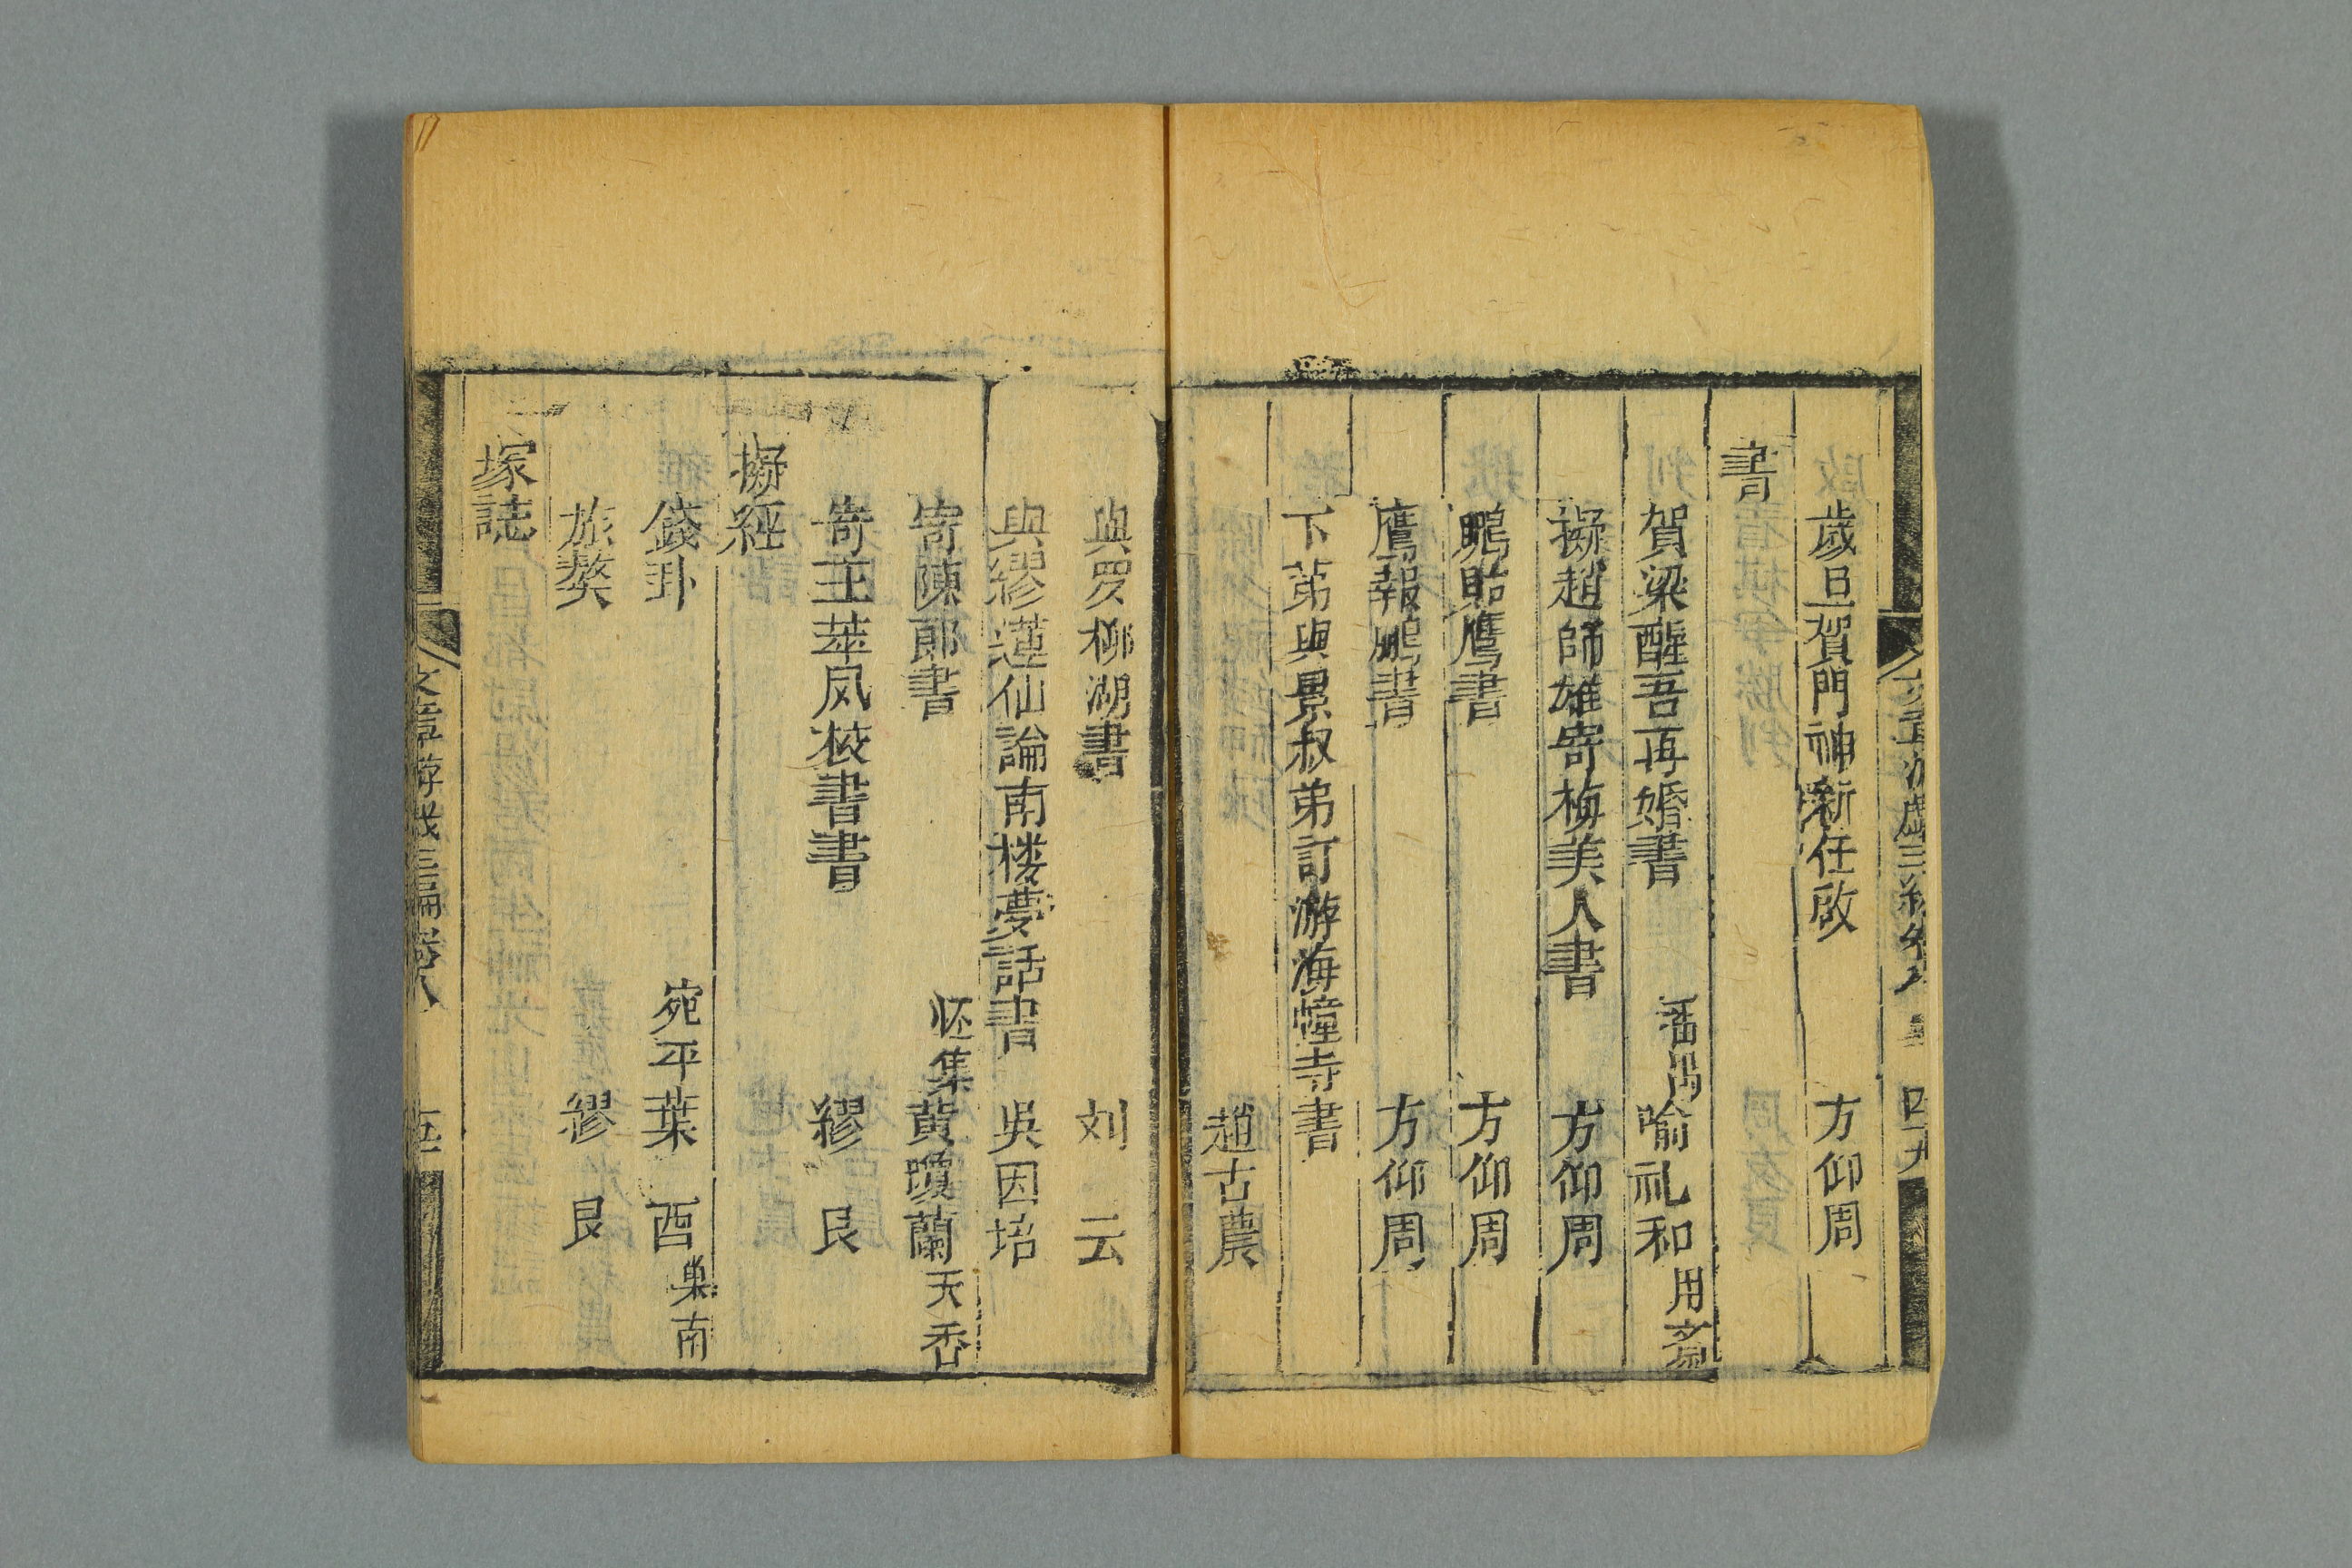 歲旦賀門神新任啟　方仰周
書
賀梁醒吾再婚書　番禺喻礼和用斋
擬趙師雄寄梅美人書　方仰周
鵰貽鷹書　方仰周
鷹報鵰書　方仰周
下第與景叔弟訂游海幢寺書
趙古農
與罗柳湖書　刘云
與繆蓮仙論南楼夢話書　吳因培
寄陳郎書　怌集黄瓊蘭天香
寄王苹凤校書書　繆艮
擬經
錢卦　宛平葉酉巢南
旅獒　繆艮
塚誌
文章游戲三編卷八